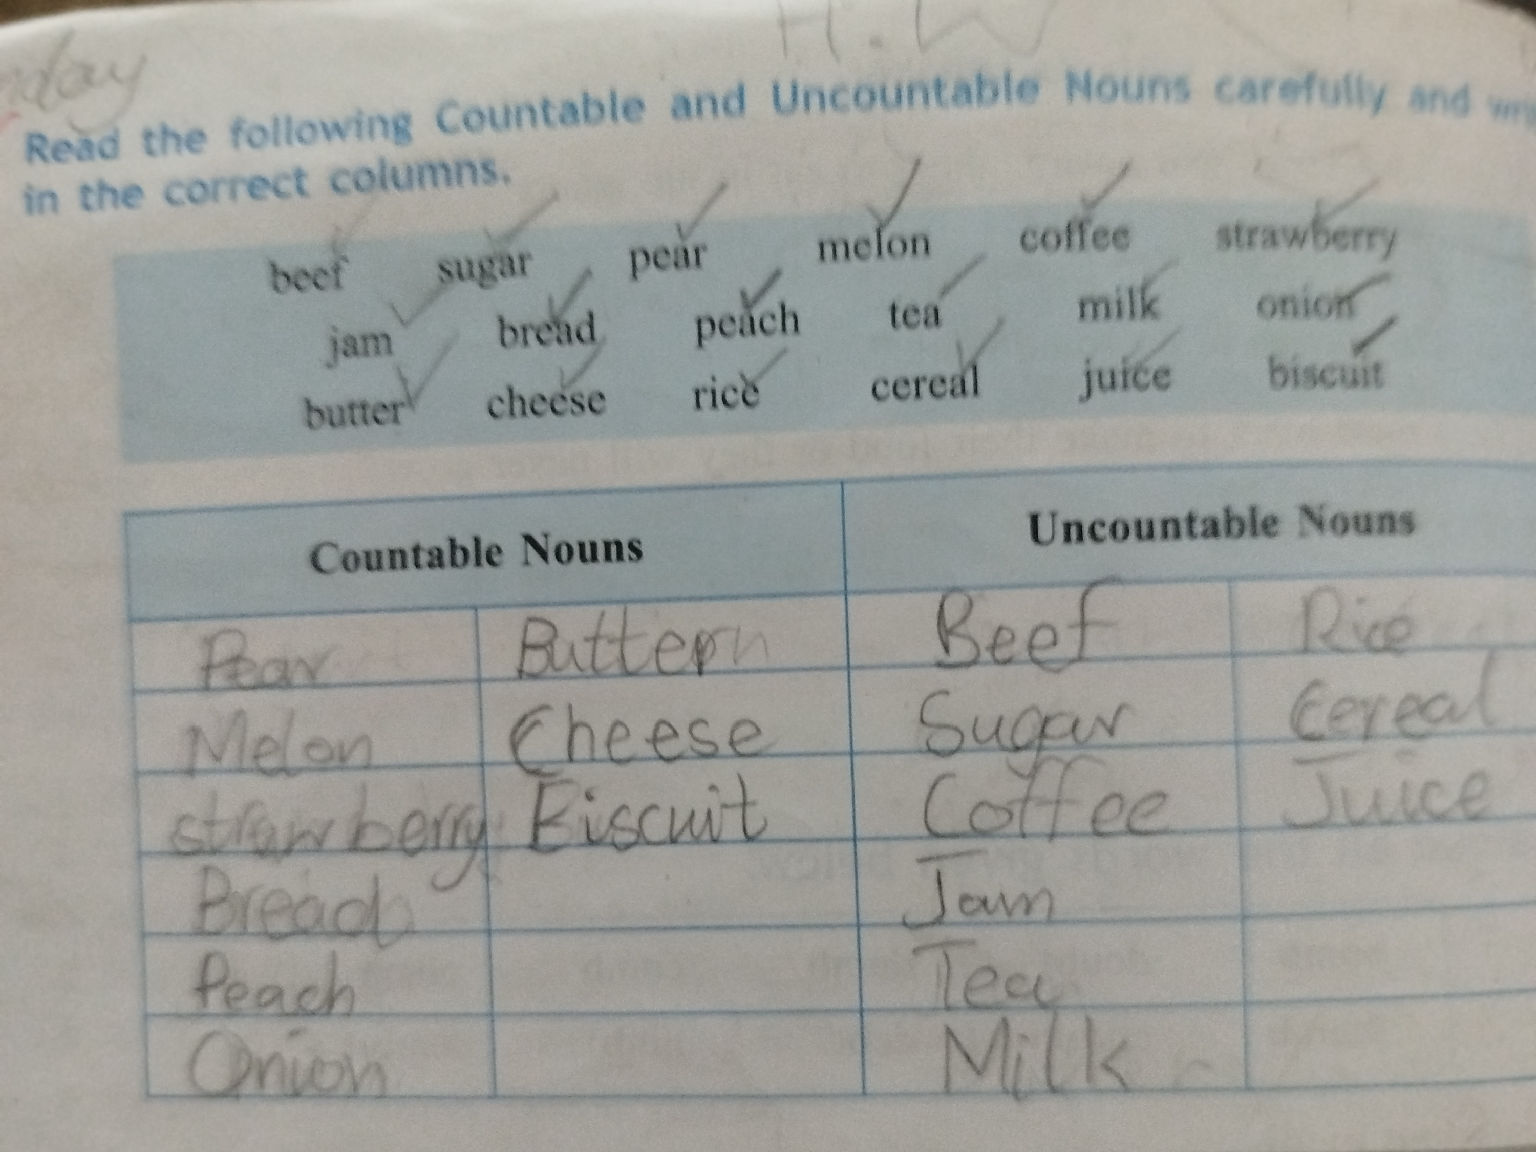 H.W
Read the following Countable and Uncountable Nouns carefully and
in the correct columns.
beef sugar pear melon coffee strawberry
jam bread peach tea milk onion
butter cheese rice cereal juice biscuit
Countable Nouns Uncountable Nouns
Pear Butter Beef Rice
Melon Cheese Sugar Cereal
strawberry Biscuit Coffee Juice
Bread Jam
Peach Tea
Onion Milk